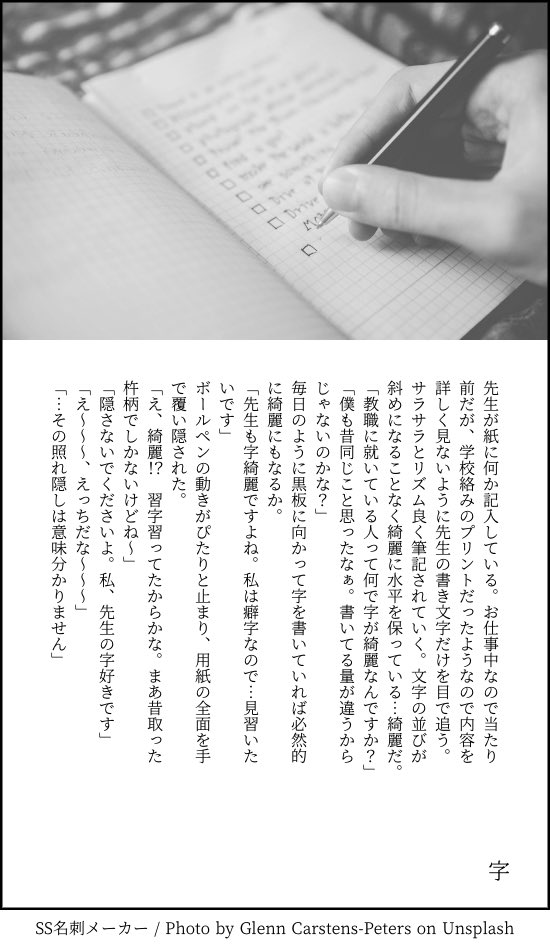 先生が紙に何か記入している。お仕事中なので当たり
前だが、学校絡みのプリントだったようなので内容を
詳しく見ないように先生の書き文字だけを目で追う。
サラサラとリズム良く筆記されていく。文字の並びが
斜めになることなく綺麗に水平を保っている…綺麗だ。
「教職に就いている人って何で字が綺麗なんですか？」
「僕も昔同じこと思ったなぁ。書いてる量が違うから
じゃないのかな？」
毎日のように黒板に向かって字を書いていれば必然的
に綺麗にもなるか。
「先生も字綺麗ですよね。私は癖字なので…見習いた
いです」
ボールペンの動きがぴたりと止まり、用紙の全面を手
で覆い隠された。
「え、綺麗!?　習字習ってたからかな。まあ昔取った
杵柄でしかないけどね〜」
「隠さないでくださいよ。私、先生の字好きです」
「え〜〜〜、えっちだな〜〜〜」
「…その照れ隠しは意味分かりません」
字
SS名刺メーカー / Photo by Glenn Carstens-Peters on Unsplash